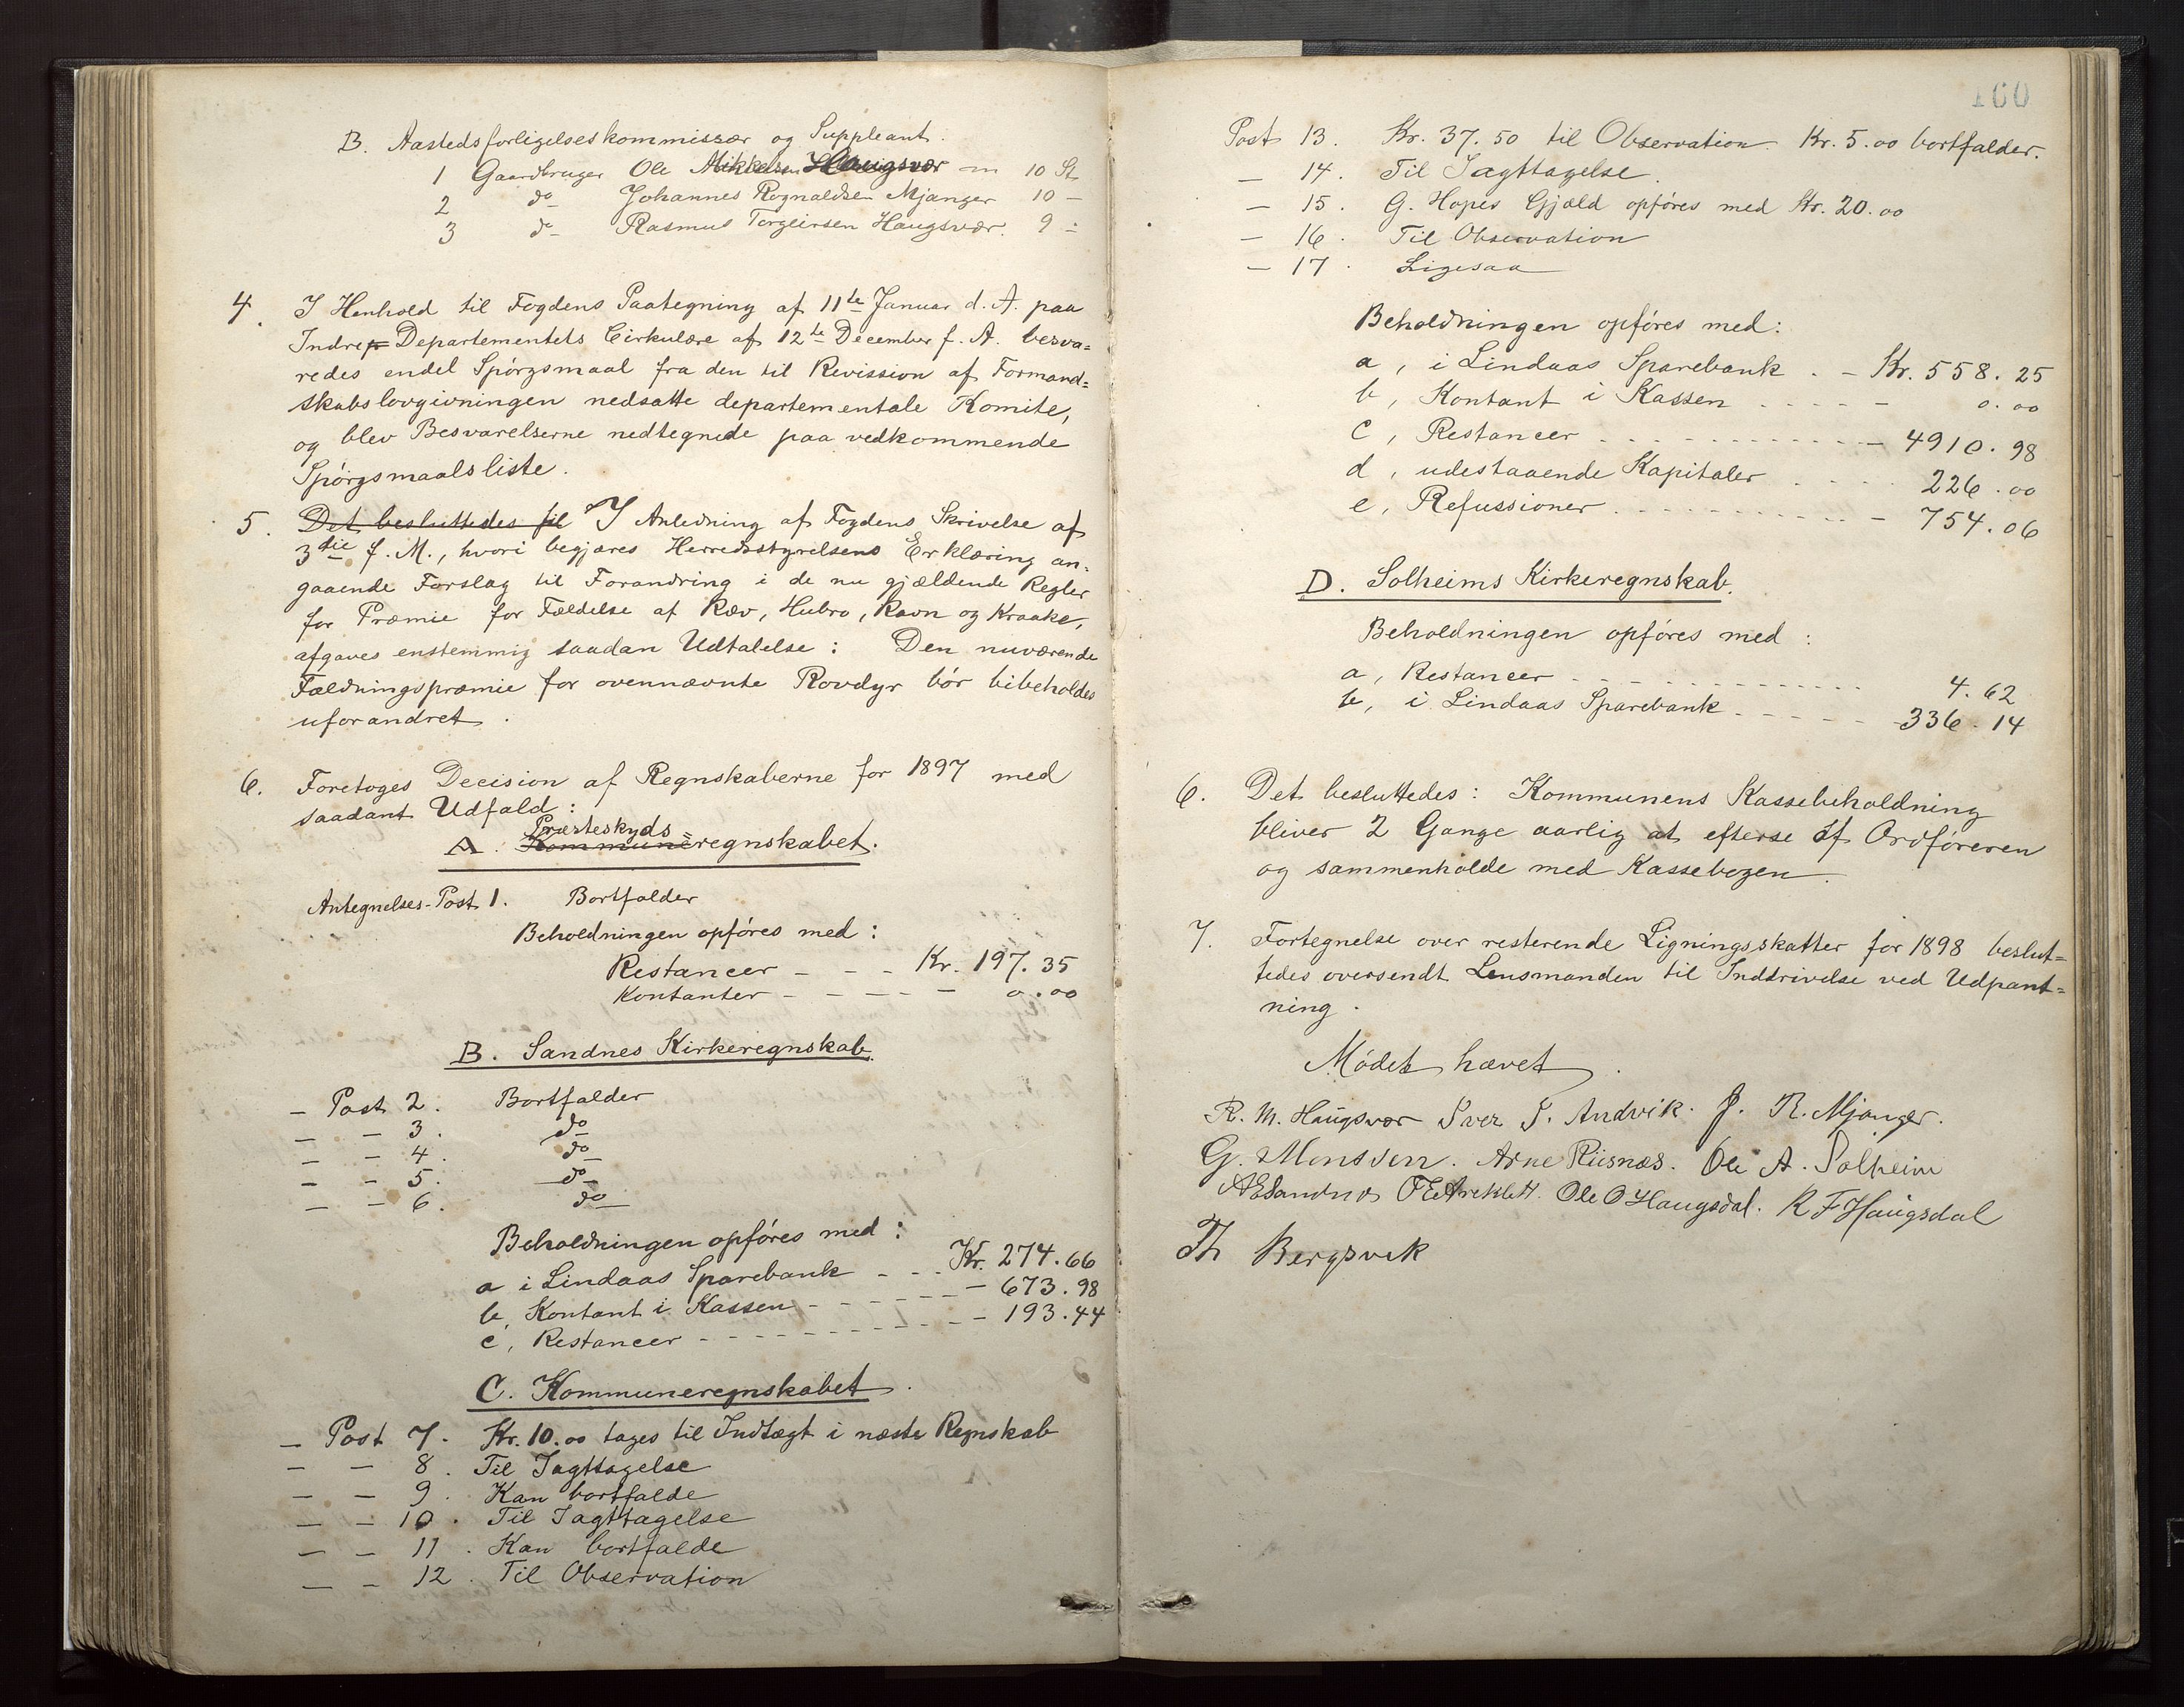 B. Aastedsforligelseskommissær og Suppleant.
1 Gaardbruger Ole Mikkelsen Haugsvær m 10 St
2 do Johannes Rognaldsen Mjanger 10 —
3 do Rasmus Torgeirsen Haugsvær. 9 -
4. I Henhold til Fogdens Paategning af 11te Januar d. A. paa
Indre Departementets Cirkulære af 12te December f. A. besva=
redes endel Spörgsmaal fra den til Revission af Formand=
skabslovgivningen nedsatte departementale Komite,
og blev Besvarelserne nedtegnede paa vedkommende
Spörgsmaalsliste.
5. Det besluttedes til I Anledning af Fogdens Skrivelse af
3die f. M., hvori begjæres Herredsstyrelsens Erklæring an-
gaaende Forslag til Forandring i de nu gjældende Regler
for Præmie for Fældelse af Ræv, Hubro, Ravn og Kraake,
afgaves enstemmig saadan Udtalelse: Den nuværende
Fældningspræmie for ovennævnte Rovdyr bör bibeholdes
uforandret.
6. Foretoges Decision af Regnskaberne for 1897 med
saadant Udfald:
Præsteskyds
A. Kommuneregnskabet.
Antegnelses-Post 1. Bortfalder
Beholdningen opföres med:
Restancer - - - Kr. 197.35
Kontanter - - - - - 0.00
B. Sandnes Kirkeregnskab.
— Post 2. Bortfalder
— — 3. do
— — 4. do
— — 5. do
— — 6. do
Beholdningen opföres med:
a i Lindaas Sparebank - - - Kr. 274.66
b, Kontant i Kassen - - - - - - 673.98
c, Restancer - - - - - - - - - - 193.44
C. Kommuneregnskabet.
— Post 7. Kr. 10.00 tages til Indtægt i næste Regnskab
— — 8. Til Iagttagelse
— — 9. Kan bortfalde
— — 10. Til Iagttagelse
— — 11. Kan bortfalde
— — 12. Til Observation
160
Post 13. Kr. 37.50 til Observation. Kr. 5.00 bortfalder.
— 14. Til Iagttagelse.
— 15. G. Hopes Gjæld opföres med Kr. 20.00
— 16. Til Observation
— 17. Ligesaa
Beholdningen opföres med:
a, i Lindaas Sparebank - - Kr. 558.25
b, Kontant i Kassen - - - - - 0.00
c, Restancer - - - - - - - - - 4910.98
d, udestaaende Kapitaler - - - - 226.00
e, Refussioner - - - - - - - - - 754.06
D. Solheims Kirkeregnskab.
Beholdningen opföres med:
a, Restancer - - - - - - - - - - 4.62
b, i Lindaas Sparebank - - - - - 336.14
6. Det besluttedes: Kommunens Kassebeholdning
bliver 2 Gange aarlig at efterse af Ordföreren
og sammenholde med Kassebogen.
7. Fortegnelse over resterende Ligningsskatter for 1898 beslut=
tedes oversendt Lensmanden til Inddrivelse ved Udpant=
ning.
Mödet hævet.
R. M. Haugsvær Sver S. Andvik. J. R. Mjanger.
G. Monssen. Arne Riisnæs. Ole A. Solheim
A E Sandnes Ole O Haugsdal. R F Haugsdal
Th Bergsvik